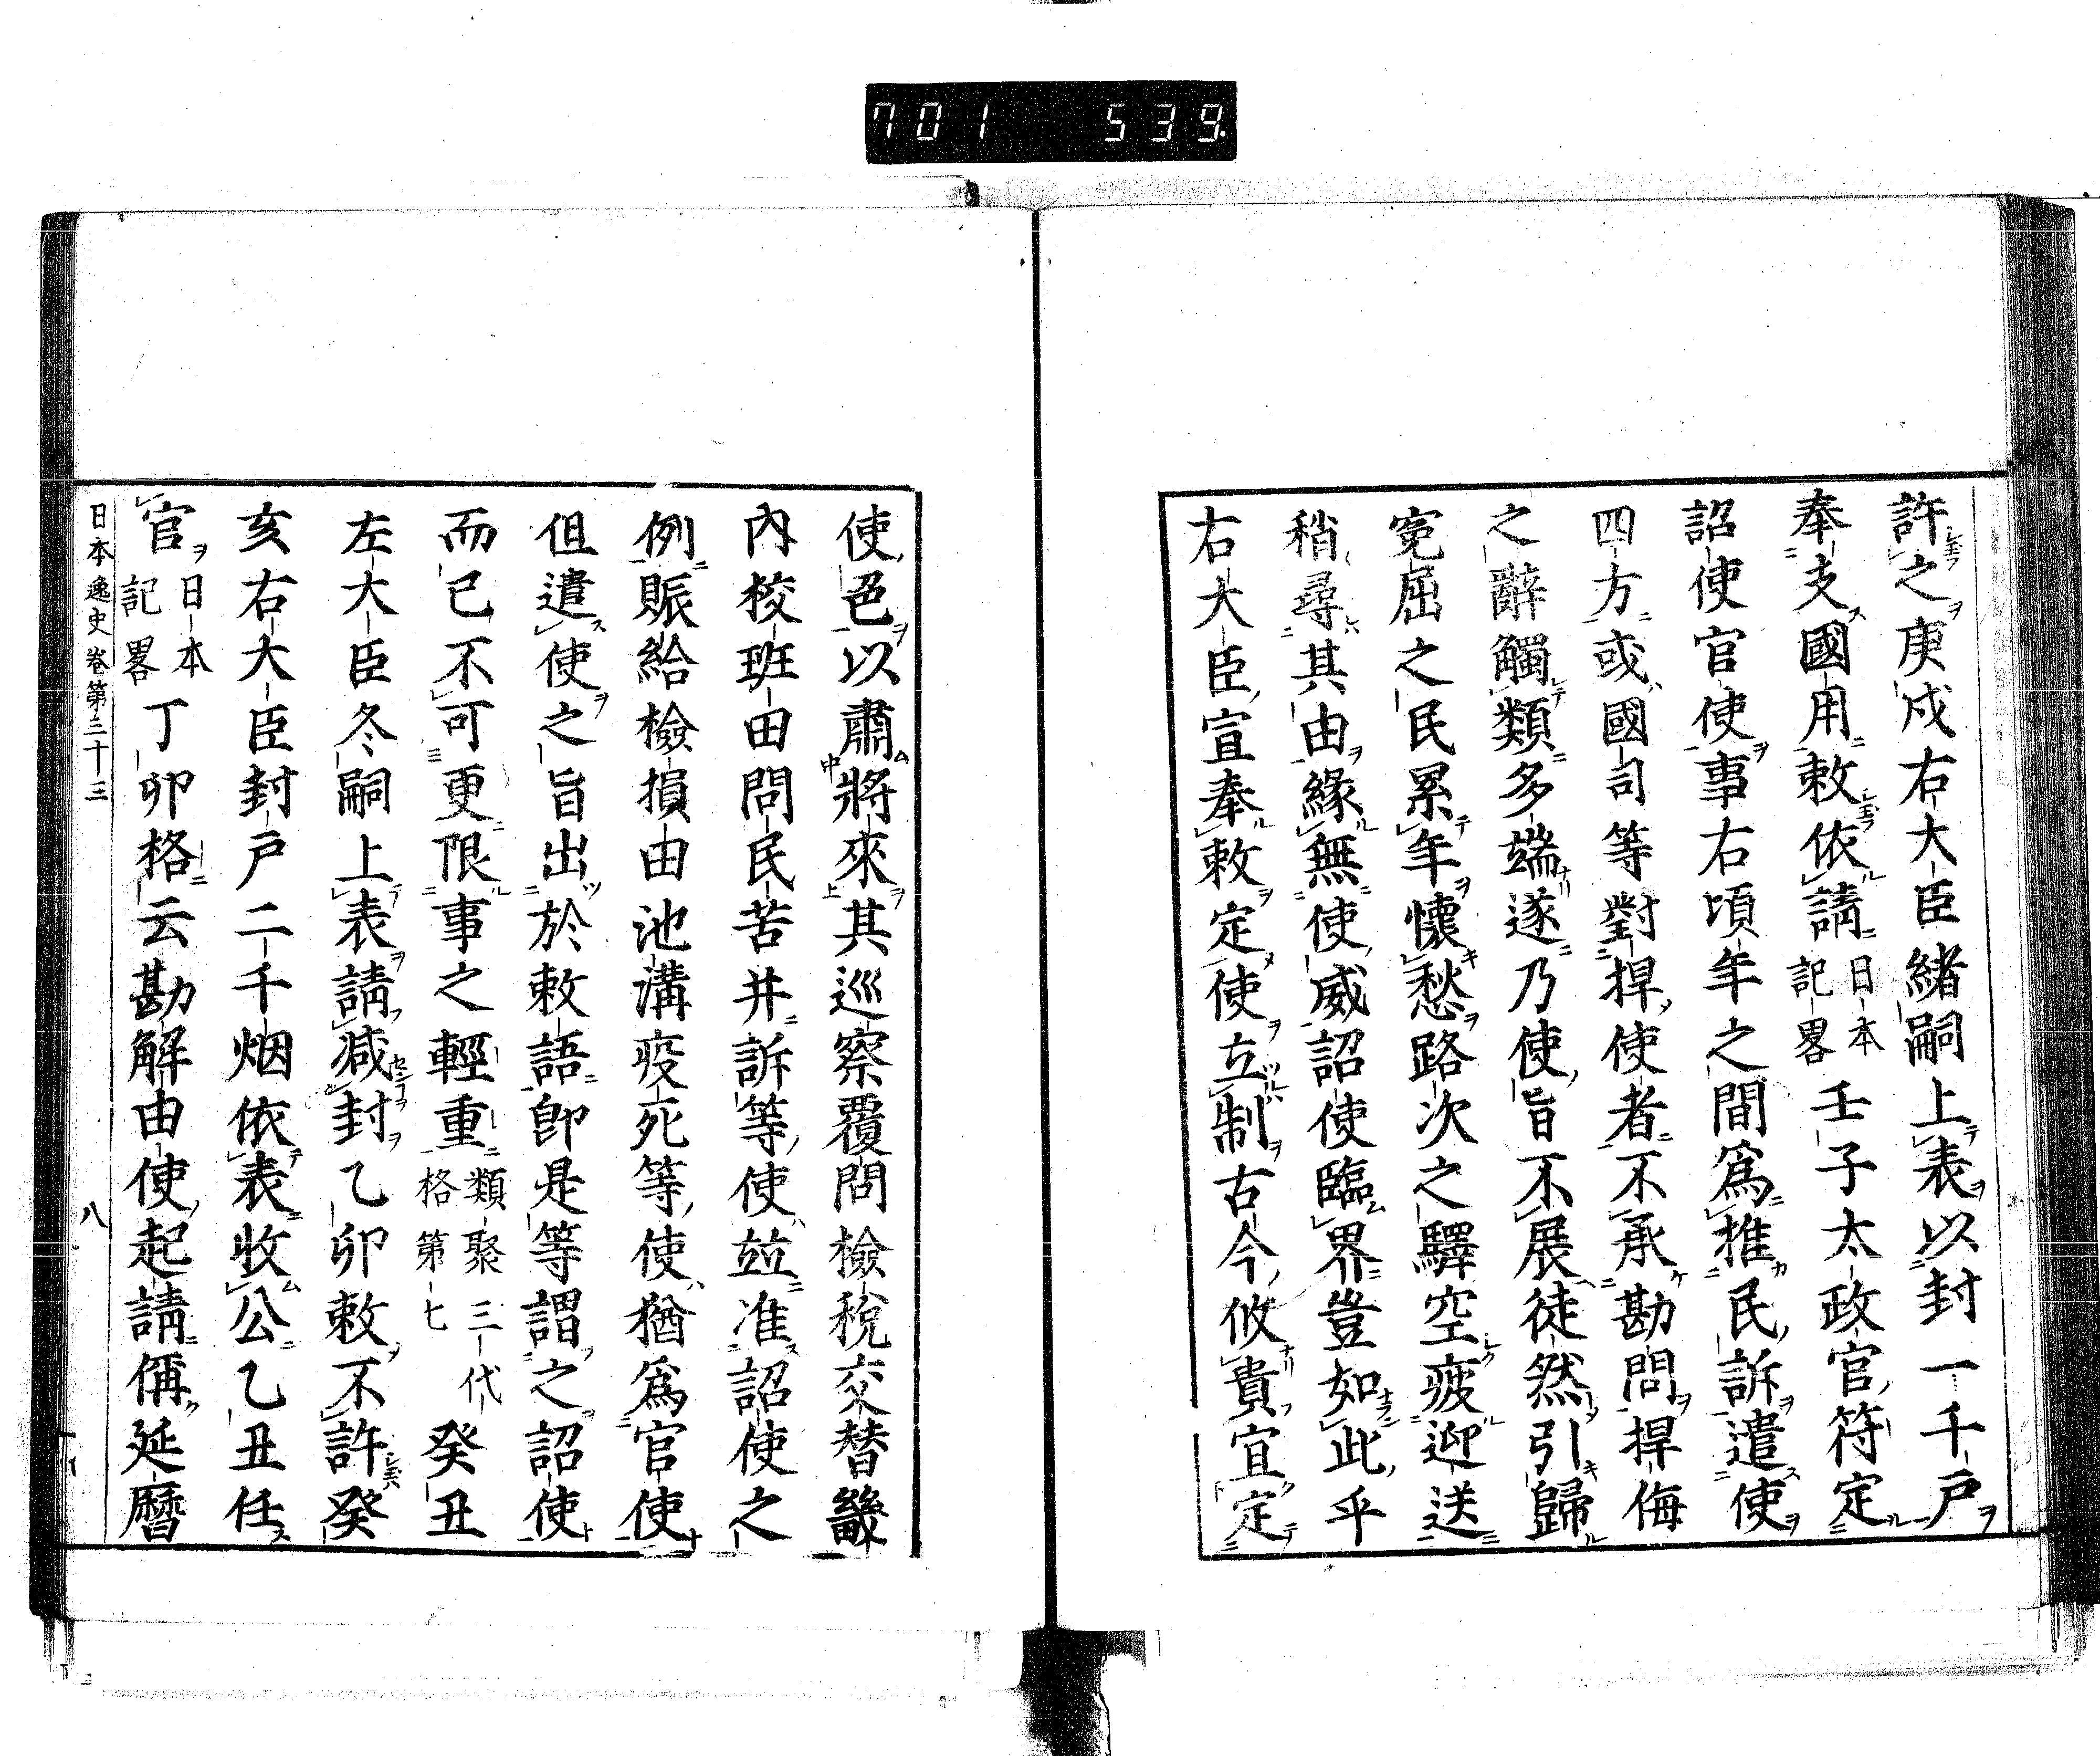 701 539.
許之庚戌右大臣緒嗣上表以封一千戸
奉支國用敕依請日本記畧壬子太政官符定
詔使官使事右頃年之間爲推民訴遣使
四方或國司等對捍使者不承勘問捍侮
之辭觸類多端遂乃使旨不展徒然引歸
寃屈之民累年懷愁路次之驛空疲迎送
稍尋其由緣無使威詔使臨界豈如此乎
右大臣宣奉敕定使立制古今攸貴宜定
使色以肅將來其巡察覆問檢税交替畿
内校班田問民苦并訴等使並准詔使之
例賑給檢損田池溝疫死等使猶爲官使
但遣使之旨出於敕語卽是等謂之詔使
而已不可更限事之輕重類聚三代格第七癸丑
左大臣冬嗣上表請減封乙卯敕不許癸
亥右大臣封戸二千烟依表收公乙丑任
官日本記畧丁卯格云勘解由使起請偁延曆
日本逸史卷第三十三 八